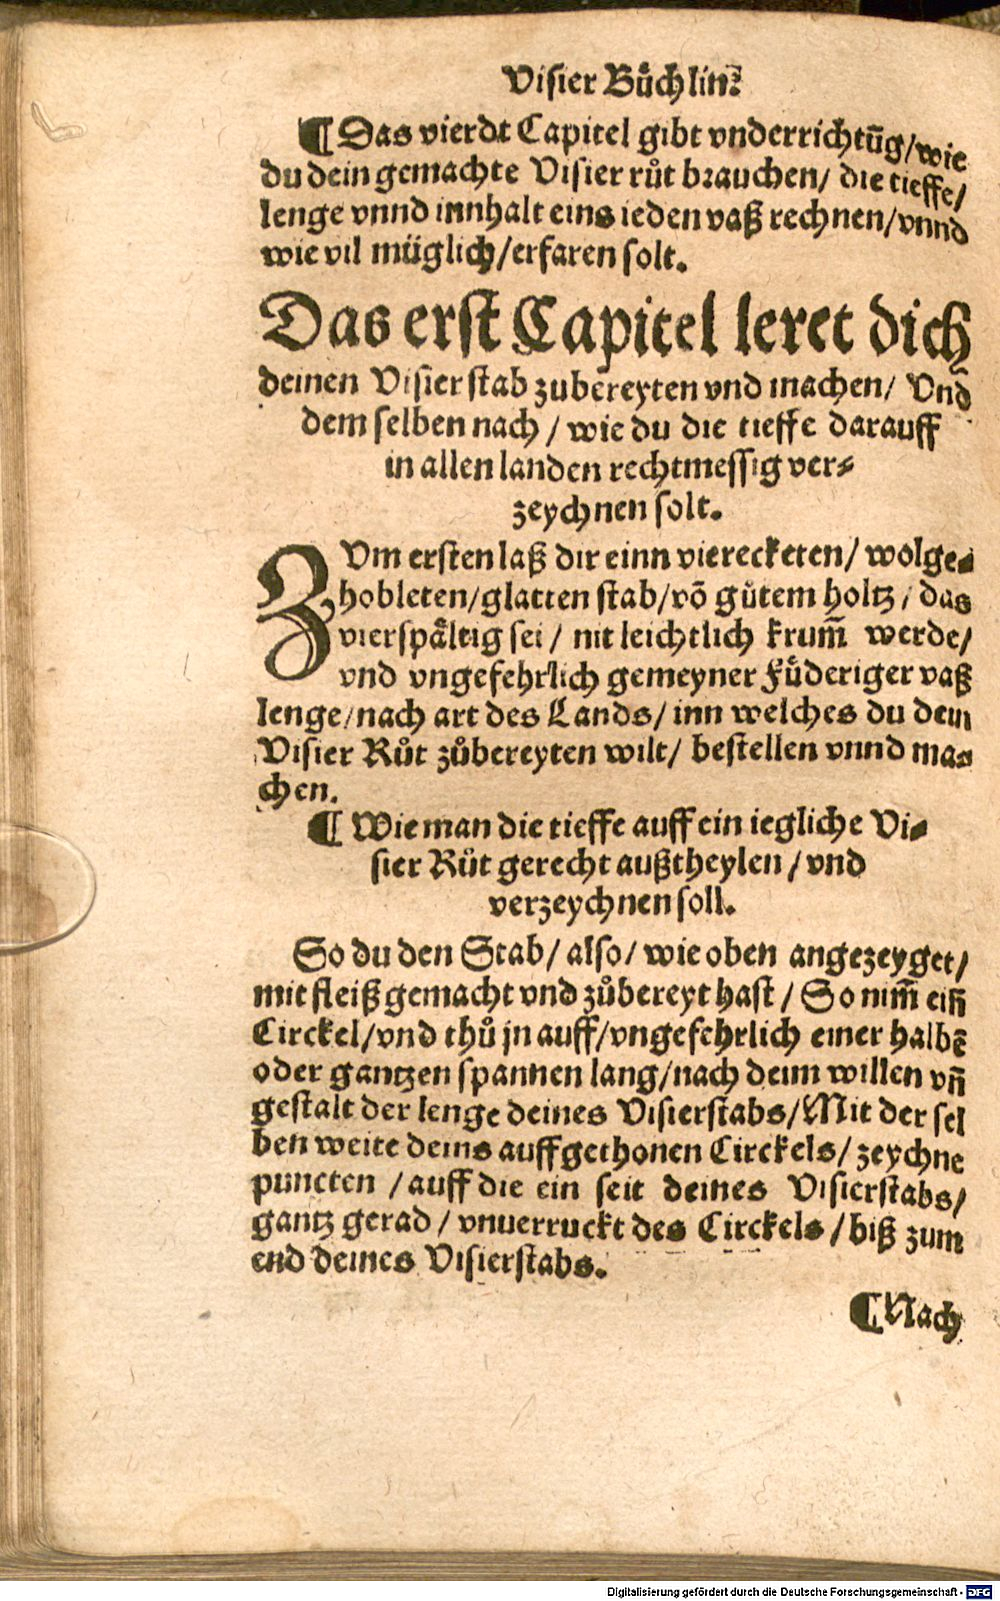 Visier Buͤchlins
¶ Das vierdt Capitel gibt vnderrichtūg/wie
du dein gemachte Visier ruͦt brauchen/ die tieffe/
lenge vnnd innhalt eins ieden vaß rechnen/vnnd
wie vil müglich/erfaren solt.
Das erst Capitel leret dich
deinen Visier stab zubereyten vnd machen/ Vnd
dem selben nach / wie du die tieffe darauff
in allen landen rechtmessig ver⸗
zeychnen solt.
ZVm ersten laß dir einn vierecketen/ wolge⸗
hobleten/glatten stab/võ guͤtem holtz/ das
vierspaͤltig sei/ nit leichtlich krum̃ werde/
vnd vngefehrlich gemeyner Fuͤderiger vaß
lenge/nach art des Lands/ inn welches du dein
Visier Ruͦt zuͦbereyten wilt/ bestellen vnnd ma⸗
chen.
¶ Wie man die tieffe auff ein iegliche Vi⸗
sier Ruͦt gerecht außtheylen/vnd
verzeychnen soll.
So du den Stab/ also/ wie oben angezeyget/
mit fleiß gemacht vnd zuͦbereyt hast/ So nim̃ eiñ
Circkel/vnd thuͦ jn auff/vngefehrlich einer halbē
oder gantzen spannen lang/nach deim willen vñ
gestalt der lenge deines Visierstabs/Mit der sel
ben weite deins auffgethonen Circkels/ zeychne
puncten /auff die ein seit deines Visierstabs/
gantz gerad / vnuerruckt des Circkels/biß zum
end deines Visierstabs.
¶Nach
Digitalisierung gefördert durch die Deutsche Forschungsgemeinschaft - DFG